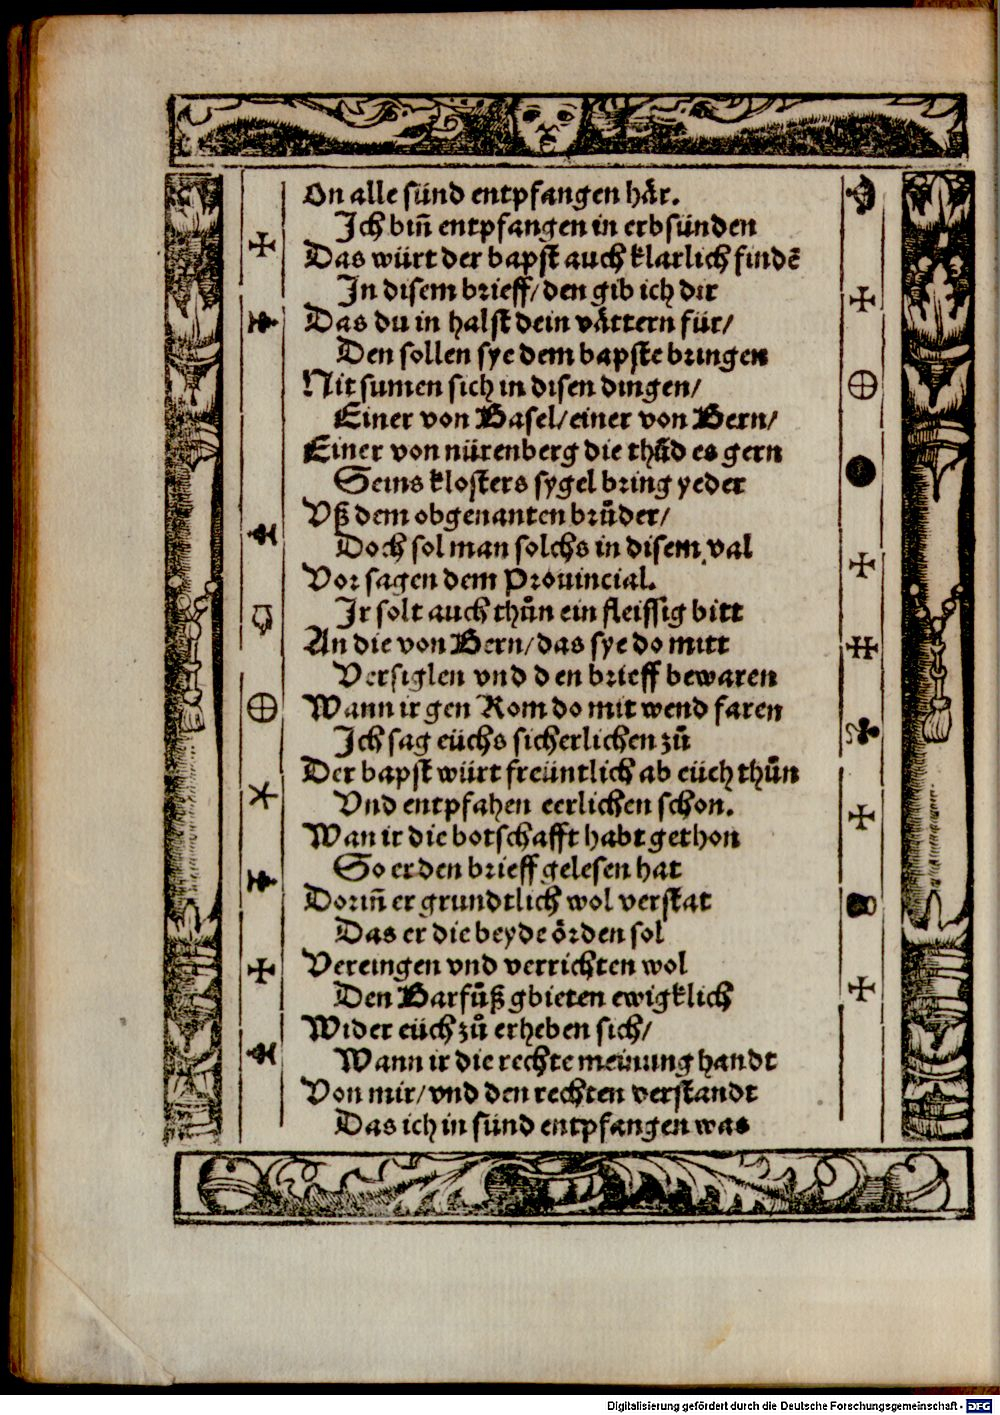 On alle sünd entpfangen här.
Ich bin̄ entpfangen in erbsünden
Das würt der bapst auch klarlich findē
In disem brieff/ den gib ich dir
Das du in halst dein vättern für/
Den sollen sye dem bapste bringen
Nit sumen sich in disen dingen/
Einer von Basel/ einer von Bern/
Einer von nürenberg die thůd es gern
Seins klosters sygel bring yeder
Vß dem obgenanten brůder/
Doch sol man solchs in disem val
Vor sagen dem Prouincial.
Ir solt auch thůn ein fleissig bitt
An die von Bern/ das sye do mitt
Versiglen vnd den brieff bewaren
Wann ir gen Rom do mit wend faren
Ich sag eüchs sicherlichen zů
Der bapst würt freüntlich ab eüch thůn
Vnd entpfahen eerlichen schon.
Wan ir die botschafft habt gethon
So er den brieff gelesen hat
Dorin̄ er grundtlich wol verstat
Das er die beyde örden sol
Vereingen vnd verrichten wol
Den Barfůß gbieten ewigklich
Wider eüch zů erheben sich/
Wann ir die rechte meinung handt
Von mir/ vnd den rechten verstandt
Das ich in sünd entpfangen was
Digitalisierung gefördert durch die Deutsche Forschungsgemeinschaft - DFG